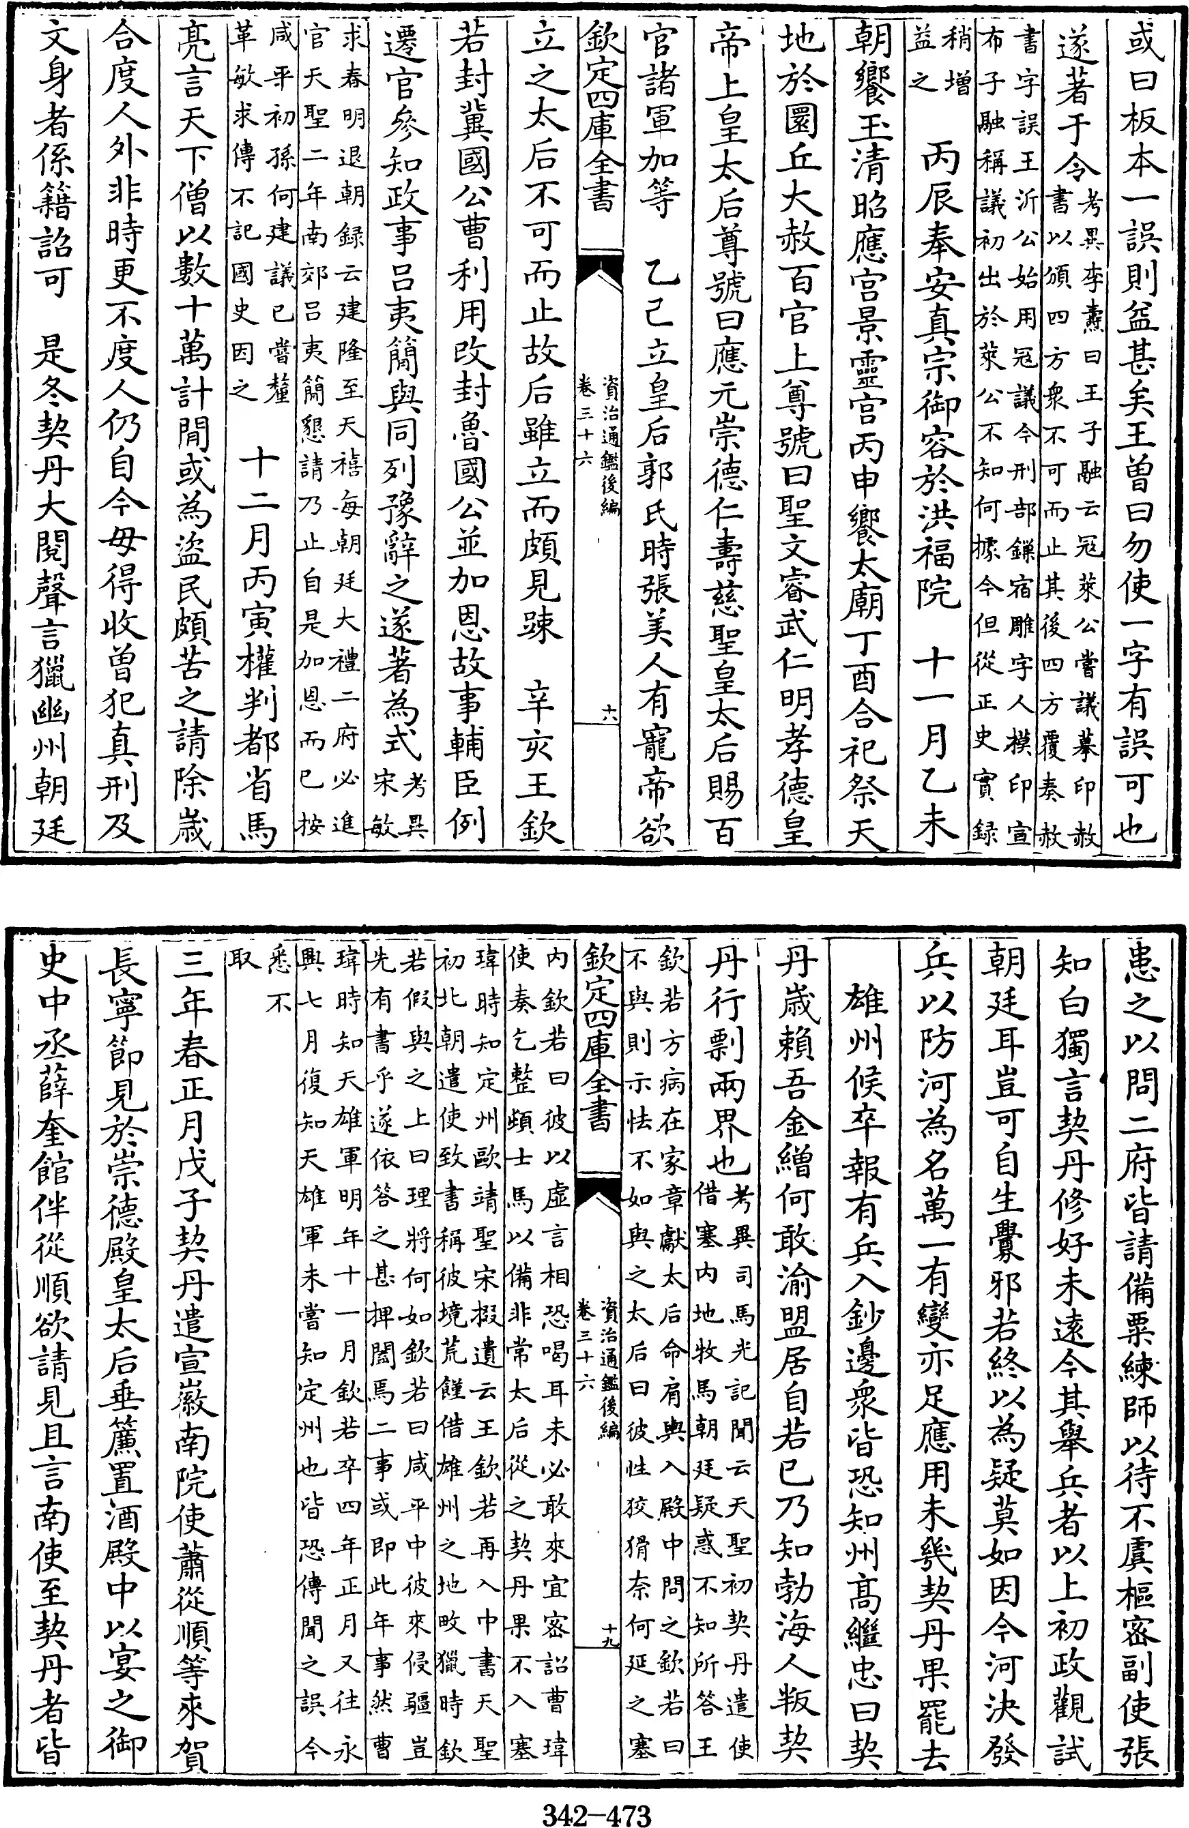 或曰板本一誤則益甚矣王曾曰勿使一字有誤可也
遂著于令考異李燾曰王子融云冦萊公嘗議摹印赦
書以頒四方衆不可而止其後四方覆奏赦
書字誤王沂公始用冦議令刑部鏁宿雕字人模印宣
布子融稱議初出於萊公不知何據今但從正史實録
稍增
益之　丙辰奉安真宗御容於洪福院　十一月乙未
朝饗玉清昭應宫景靈宫丙申饗太廟丁酉合祀祭天
地於圜丘大赦百官上尊號曰聖文睿武仁明孝德皇
帝上皇太后尊號曰應元崇德仁壽慈聖皇太后賜百
官諸軍加等　乙己立皇后郭氏時張美人有寵帝欲
欽定四庫全書
資治通鑑後編
卷三十六
十八
立之太后不可而止故后雖立而頗見踈　辛亥王欽
若封冀國公曹利用改封魯國公並加恩故事輔臣例
遷官參知政事吕夷簡與同列豫辭之遂著為式考異
宋敏
求春明退朝録云建隆至天禧每朝廷大禮二府必進
官天聖二年南郊吕夷簡懇請乃止自是加恩而已按
咸平初孫何建議已嘗釐
革敏求傳不記國史因之　十二月丙寅權判都省馬
亮言天下僧以數十萬計間或為盗民頗苦之請除歲
合度人外非時更不度人仍自今毋得收曾犯真刑及
文身者係籍詔可　是冬契丹大閲聲言獵幽州朝廷
患之以問二府皆請備粟練師以待不虞樞密副使張
知白獨言契丹修好未遠今其舉兵者以上初政觀試
朝廷耳豈可自生釁邪若終以為疑莫如因今河決發
兵以防河為名萬一有變亦足應用未幾契丹果罷去
雄州候卒報有兵入鈔邊衆皆恐知州髙繼忠曰契
丹歲賴吾金繒何敢渝盟居自若已乃知勃海人叛契
丹行剽兩界也考異司馬光記聞云天聖初契丹遣使
借塞内地牧馬朝廷疑惑不知所答王
欽若方病在家章獻太后命肩輿入殿中問之欽若曰
不與則示怯不如與之太后曰彼性狡猾奈何延之塞
欽定四庫全書
資治通鑑後編
卷三十六
十九
内欽若曰彼以虛言相恐喝耳未必敢來宜密詔曹瑋
使奏乞整頓士馬以備非常太后從之契丹果不入塞
瑋時知定州歐靖聖宋掇遺云王欽若再入中書天聖
初北朝遣使致書稱彼境荒饉借雄州之地畋獵時欽
若假與之上曰理將何如欽若曰咸平中彼來侵疆豈
先有書乎遂依答之甚捭闔焉二事或即此年事然曹
瑋時知天雄軍明年十一月欽若卒四年正月又往永
興七月復知天雄軍未嘗知定州也皆恐傳聞之誤今
悉不
取
三年春正月戊子契丹遣宣徽南院使蕭從順等來賀
長寧節見於崇德殿皇太后垂簾置酒殿中以宴之御
史中丞薛奎館伴從順欲請見且言南使至契丹者皆
342-473